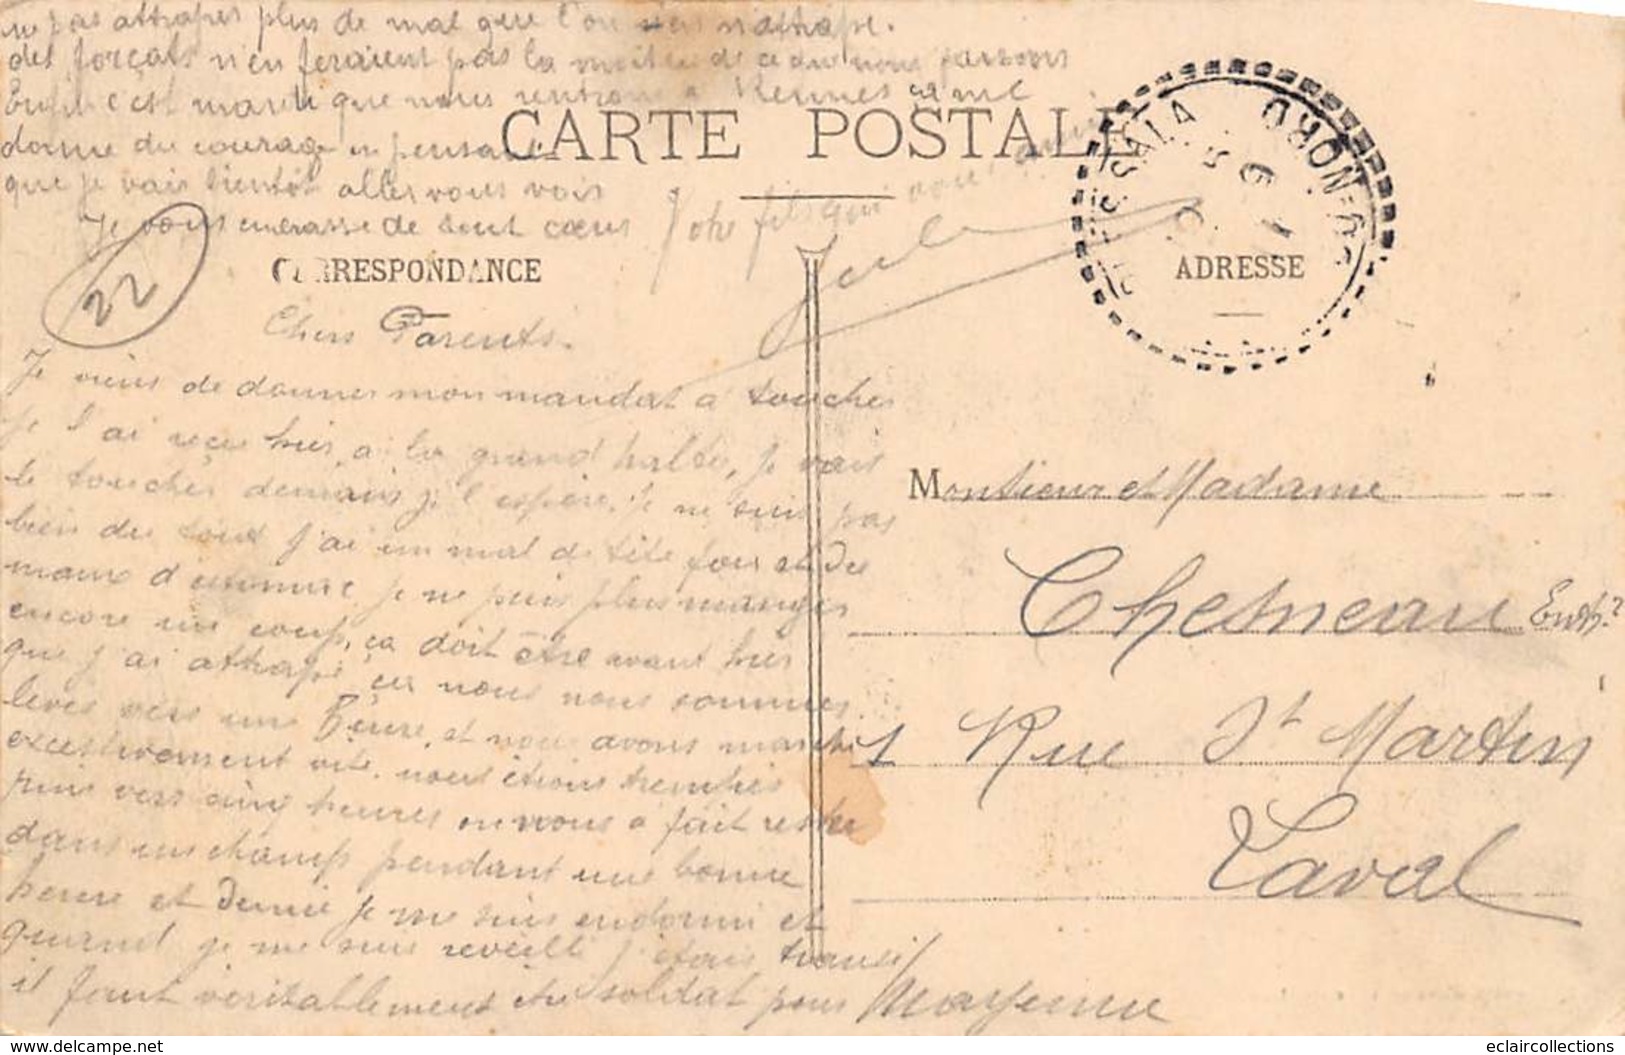 ne pas attraper plus de mal que l'on n'attrape.
des forçats n'en feraient pas la moitié de ce que nous faisons
Enfin c'est mardi que nous rentrons a Rennes ça me
donne du courage en pensant
que je vais bientôt aller vous voir
Je vous embrasse de tout cœur Votre fils qui vous aime
Jules
CARTE POSTALE
CORRESPONDANCE
ADRESSE
22
Chers Parents.
Je viens de donner mon mandat a toucher
je l'ai reçu hier, a la grand halte, je vais
le toucher demain je l'espère. Je ne suis pas
bien du tout j'ai un mal de tête fou et du
mam d' je ne puis plus manger
encore un coup, ça doit être avant hier
que j'ai attrapé ça nous nous sommes
levés vers une heure, et nous avons marché
excessivement vite, nous étions trempés
puis vers cinq heures on nous a fait rester
dans un champ pendant une bonne
heure et demie je me suis endormi et
quand je me suis reveillé j'étais transi
il faut veritablement etre soldat pour
Monsieur et Madame
Chesneau Entr?
1 Rue St Martin
Laval
Mayenne
DU-NORD
delcampe.net
eclaircollections